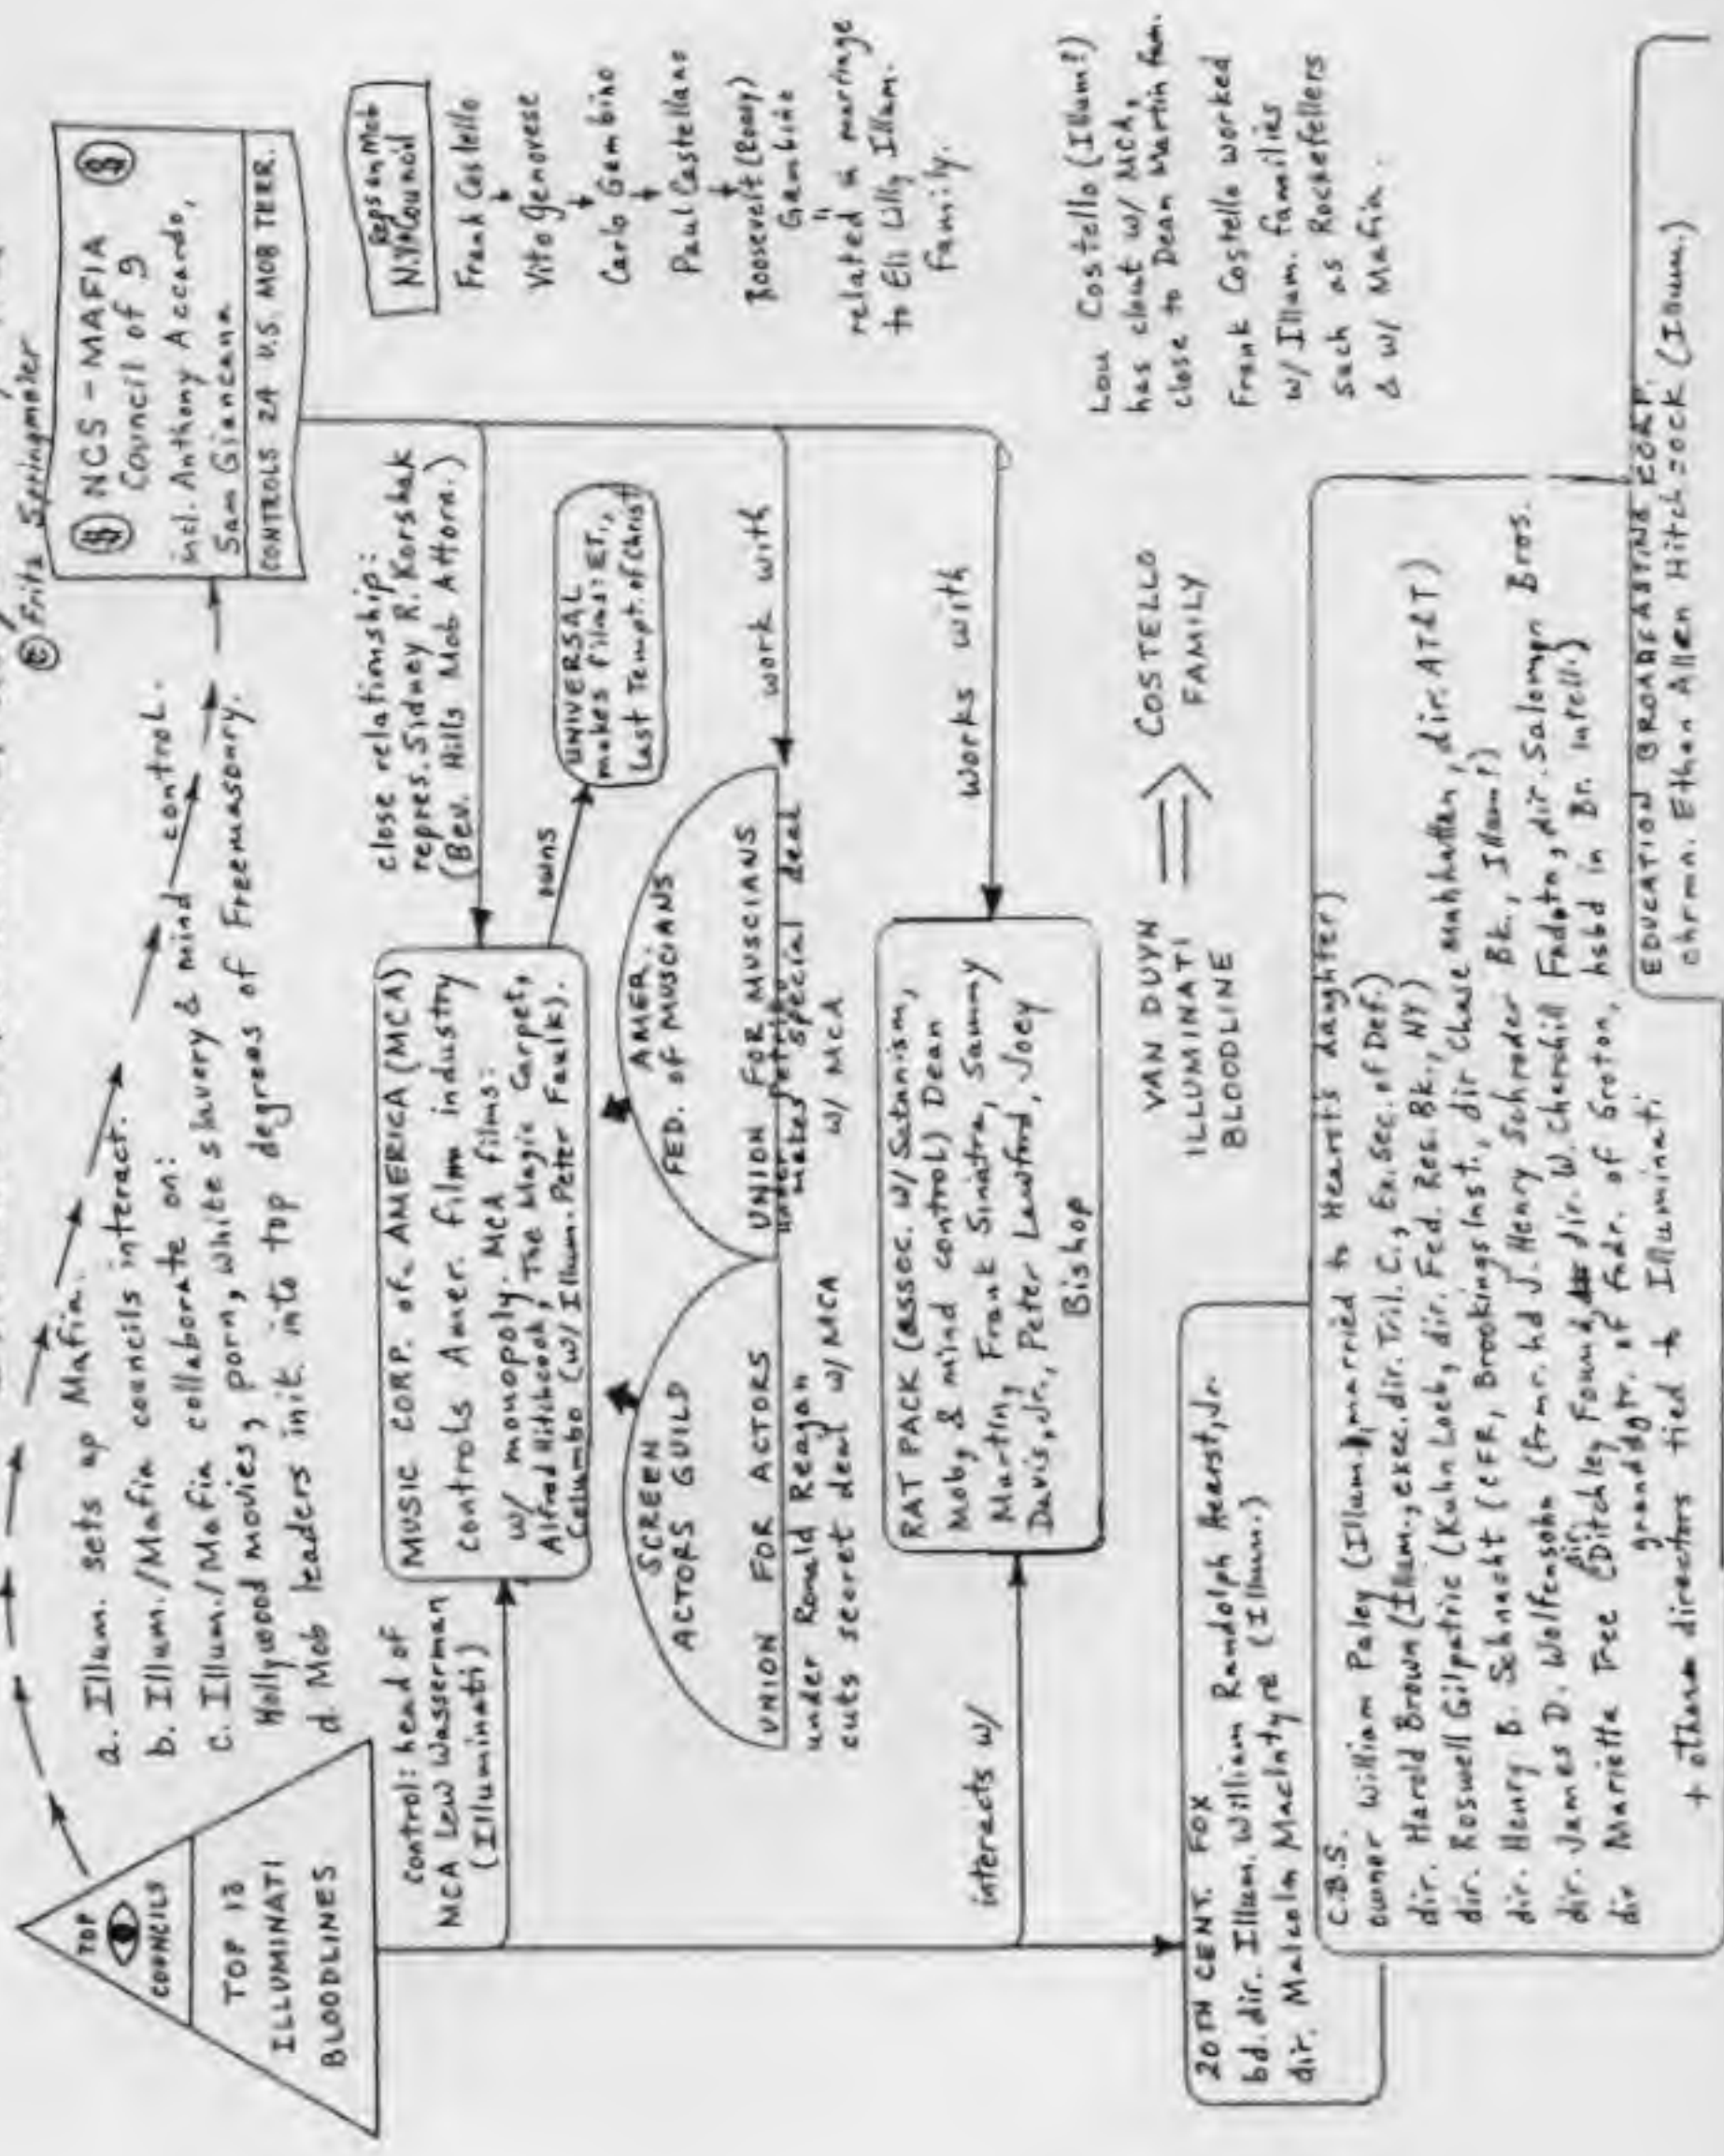 © Fritz Springmeier
TOP
COUNCILS
TOP 13
ILLUMINATI
BLOODLINES
a. Illum. sets up Mafia.
b. Illum./Mafia councils interact.
c. Illum./Mafia collaborate on:
Hollywood movies, porn, white slavery & mind control.
d. Mob leaders init. into top degrees of Freemasonry.
($) NCS - MAFIA ($)
Council of 9
incl. Anthony Accardo,
Sam Giancana
CONTROLS 24 U.S. MOB TERR.
Reps on Mob
N.Y. Council
Frank Costello
Vito Genovese
Carlo Gambino
Paul Castellano
Roosevelt (Rosey)
Gambino
related in marriage
to Eli Lilly Illum.
Family.
Control: head of
MCA Lew Wasserman
(Illuminati)
MUSIC CORP. of. AMERICA (MCA)
controls Amer. film industry
w/ monopoly. MCA films:
Alfred Hitchcock, The Magic Carpet,
Columbo (w/ Illum. Peter Faulk).
close relationship:
repres. Sidney R. Korshak
(Bev. Hills Mob Attorn.)
owns
UNIVERSAL
makes films: ET,
Last Tempt. of Christ
SCREEN
ACTORS GUILD
UNION FOR ACTORS
under Ronald Reagan
cuts secret deal w/ MCA
AMER.
FED. of MUSCIANS
UNION FOR MUSCIANS
makes special deal
w/ MCA
work with
interacts w/
RAT PACK (assoc. w/ Satanism,
Mob, & mind control) Dean
Martin, Frank Sinatra, Sammy
Davis, Jr., Peter Lawford, Joey
Bishop
works with
VAN DUYN
ILLUMINATI
BLOODLINE
COSTELLO
FAMILY
Lou Costello (Illum?)
has clout w/ MCA,
close to Dean Martin fam.
Frank Costello worked
w/ Illum. families
such as Rockefellers
& w/ Mafia.
20TH CENT. FOX
bd. dir. Illum. William Randolph Hearst, Jr.
dir. Malcolm MacIntyre (Illum.)
C.B.S.
owner William Paley (Illum.), married to Hearst's daughter)
dir. Harold Brown (Illum., exec. dir. Tril. C., Ex. Sec. of Def.)
dir. Roswell Gilpatric (Kuhn Loeb, dir. Fed. Res. Bk., NY)
dir. Henry B. Schnacht (CFR, Brookings Inst., dir Chase Manhattan, dir. AT&T)
dir. James D. Wolfensohn (frmr. hd J. Henry Schroder Bk., Illum?)
dir Marietta Tree (Ditchley Found, dir. W. Churchill Fndatn, dir. Salomon Bros.
granddgtr. of fndr. of Groton, hsbd in Br. intell.)
+ other directors tied to Illuminati
EDUCATION BROADCASTING CORP.
chrmn. Ethan Allen Hitchcock (Illum.)